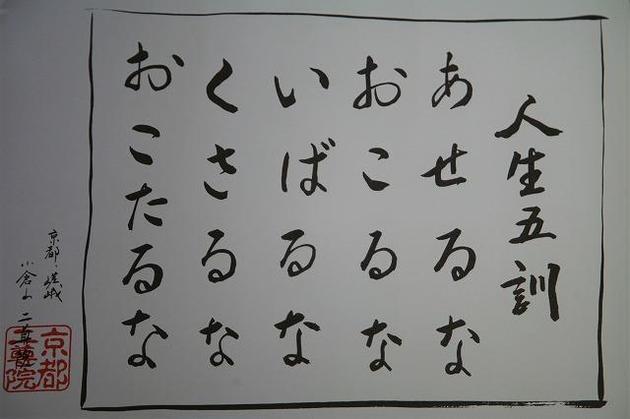 人生五訓
あせるな
おこるな
いばるな
くさるな
おこたるな
京都 嵯峨
小倉山 二尊院
京都
二尊院